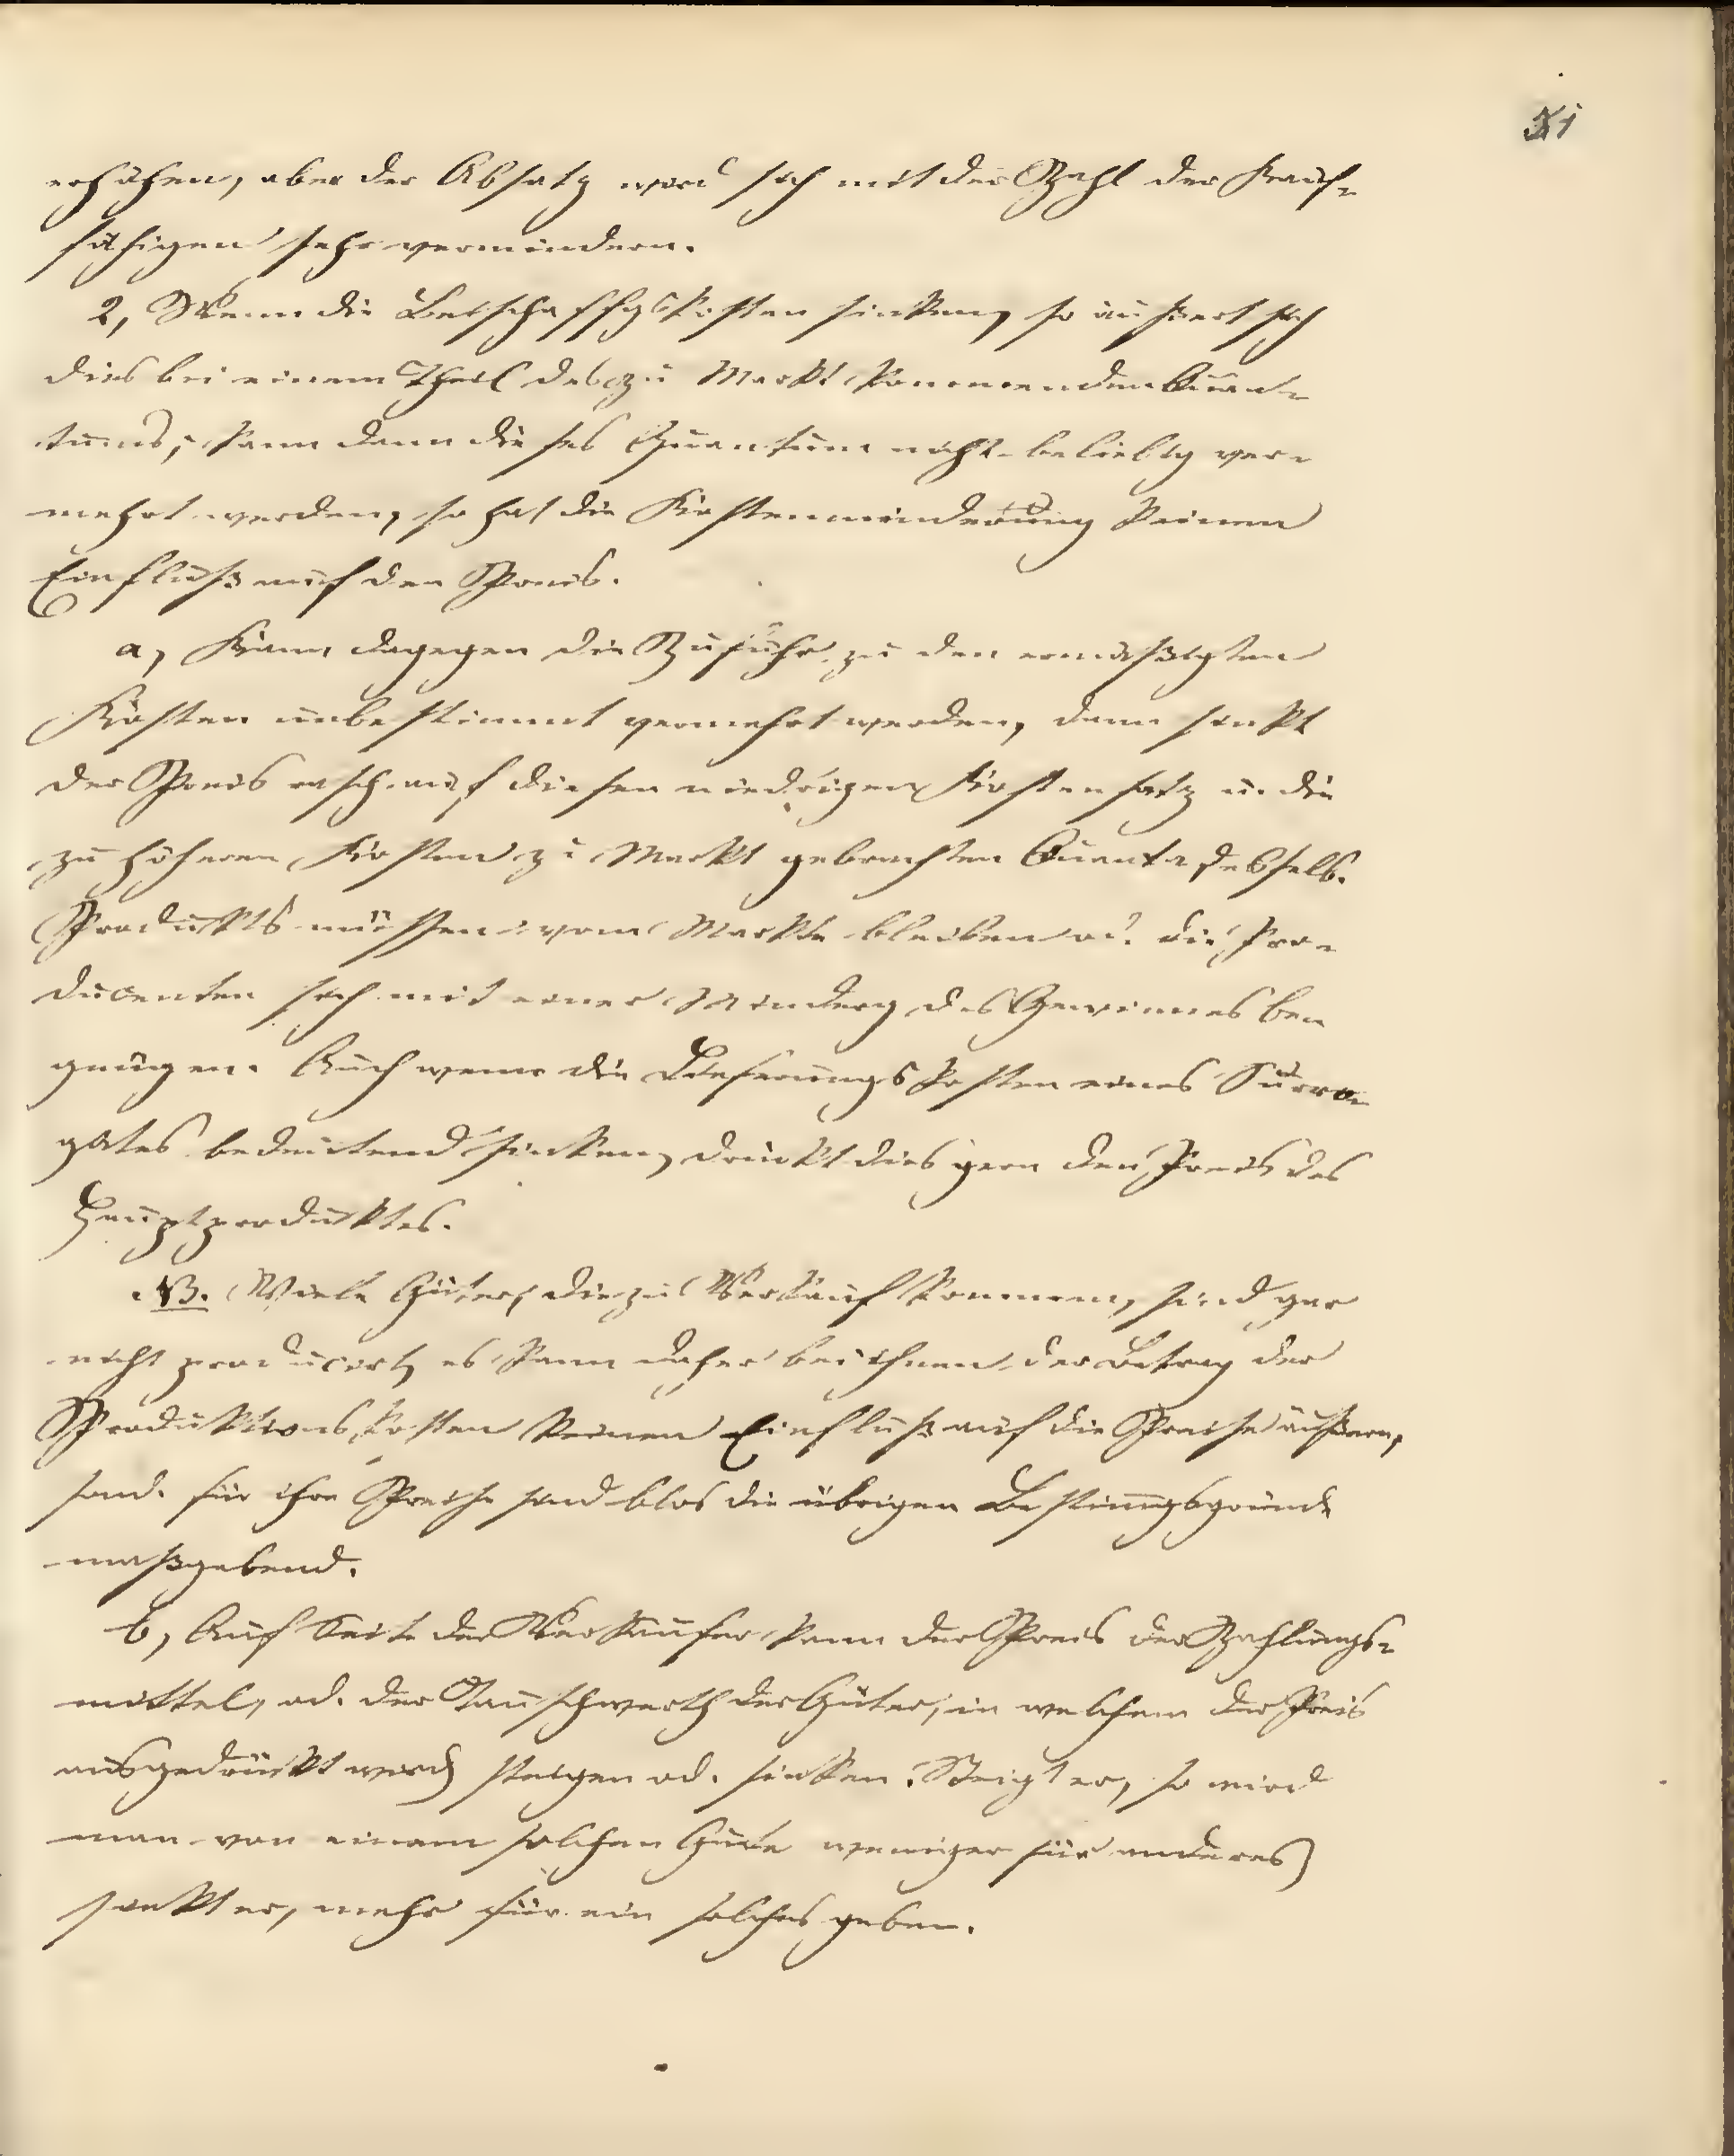 51
erhöhen, aber der Absatz wird sich mit der Zahl der Kauf-
fähigen sehr vermindern.
2, Wenn die Beischaffgskosten sinken, so äußert sich
dies bei einem Theil des zu Markt kommenden Quan-
tums; kann dann dieses Quantum nicht beliebig ver-
mehrt werden, so hat die Kostenminderung keinen
Einfluß auf den Preis.
a, Kann dagegen die Zufuhr zu den ermäßigten
Kosten unbestimmt vermehrt werden, dann sinkt
der Preis rasch auf diesen niedrigen Kostensatz u. die
zu höheren Kosten zu Markt gebrachten Quanta desselb.
Produkts müssen vom Markte bleiben od. die Pro-
ducenten sich mit einer Minderg des Gewinnes be-
gnügen. Auch wenn die Lieferungskosten eines Surro-
gates bedeutend sinken, drückt dies gern den Preis des
Hauptproduktes.
NB. Viele Güter, die zu Verkauf kommen, sind gar
nicht producirt, es kann daher bei ihnen der Betrag der
Produktionskosten keinen Einfluß auf die Preise äußern,
sond. für ihre Preise sind blos die übrigen Bestimgsgründe
maßgebend.
b, Auf Seite der Verkäufer kann der Preis der Zahlungs-
mittel, od. der Tauschwerth der Güter, in welchem der Preis
ausgedrückt wird, steigen od. sinken. Steigt er, so wird
man von einem solchen Gute weniger für anderes,
sinkt er, mehr für ein solches geben.